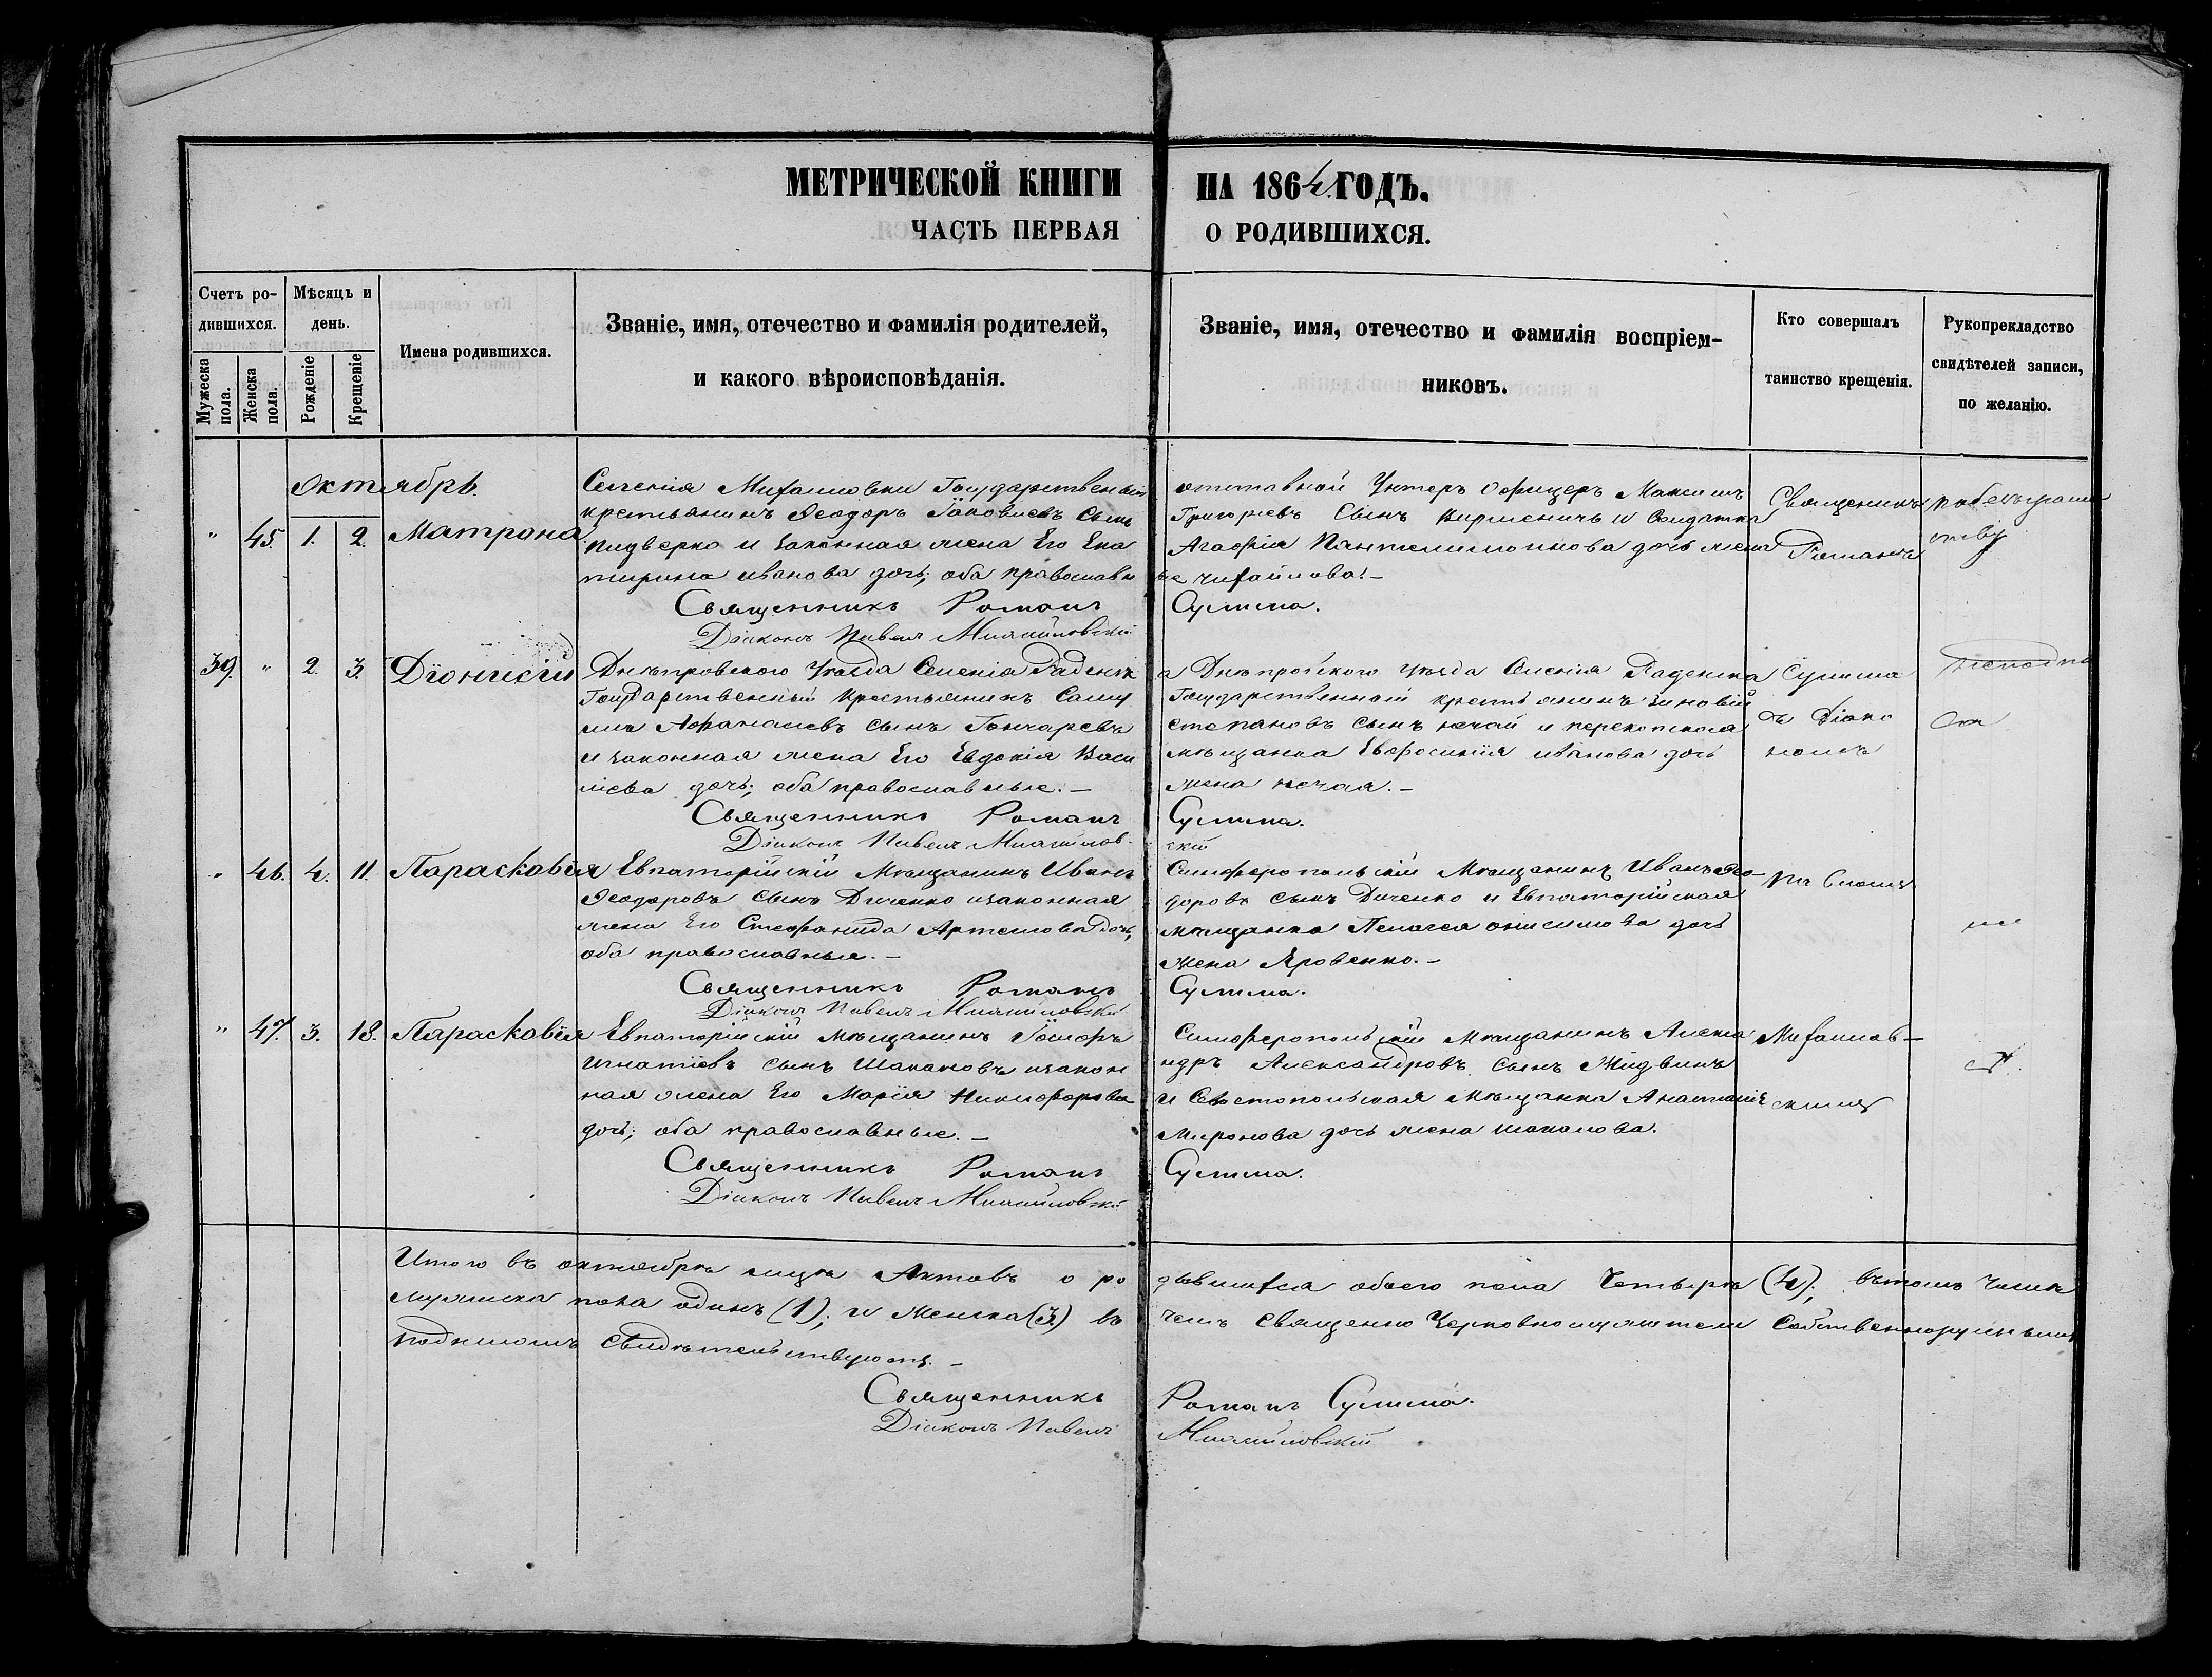 МЕТРИЧЕСКОЙ КНИГИ НА 1864 ГОДЪ.
ЧАСТЬ ПЕРВАЯ О РОДИВШИХСЯ.
Счетъ ро-
дившихся.
Мужеска
пола.
Женска
пола.
Мѣсяцъ и
день.
Рожденіе
Крещеніе
Имена родившихся.
Званіе, имя, отечество и фамилія родителей,
и какого вѣроисповѣданія.
Званіе, имя, отечество и фамилія воспріем-
никовъ.
Кто совершалъ
таинство крещенія.
Рукопрекладство
свидѣтелей записи,
по желанію.
Октябрь.
" 45. 1. 2. Матрона
Селенія Михайловки Государственный
крестьянинъ Ѳеодоръ Іаковлевъ сынъ
и законная жена Его Ека
терина иванова дочь; оба православн
ые
Священникъ Романъ
Діаконъ Павелъ Михайловскій
отставной Унтеръ Офицеръ Максимъ
Григорьевъ Сынъ и Солдатка
Агафія Пантелимонова дочь жена
Сулима.
Священникъ
Романъ
39. " 2. 3. Діонисій
Днѣпровского Уѣзда Селенія Раденск
Государственный крестьянинъ Саму
илъ Афанасьевъ сынъ Гончаревъ
и законная жена Его Евдокія Васи
лиева дочь; оба православные. —
Священникъ Романъ
Діаконъ Павелъ Михайлов-
а Днѣпровского уѣзда Селенія Раденска
Государственной крестьянинъ Зиновій
степановъ сынъ нечай и перекопская
мѣщанка Евфросинія иванова дочь
жена нечая. —
Сулима.
скій
Сулима
съ Діако
номъ
" 46. 4. 11. Парасковія
Евпаторійскій Мѣщанинъ Иванъ
Ѳеодоровъ сынъ Диченко и законная
жена Его Стефанида Артемова дочь,
оба православные. —
Священникъ Романъ
Діаконъ Павелъ Михайловскій
Симферопольскій Мѣщанинъ Иванъ Ѳео-
доровъ сынъ Диченко и Евпаторійская
мѣщанка Пелагея онисимова дочь
жена Яровенко. —
Сулима.
" 47. 3. 18. Парасковія
Евпаторійскій мѣщанинъ Іосифъ
игнатіевъ сынъ Шакаловъ и закон
ная жена Его Марія Никифорова
дочь; оба православные. —
Священникъ Романъ
Діаконъ Павелъ Михайловскій
Симферопольскій Мѣщанинъ Алекса
ндръ Александровъ сынъ Жидвинъ
и Севстопольская Мѣщанка Анастасія
Миронова дочь жена шакалова.
Сулима.
Михайлов-
скимъ
Итого въ октябрѣ мцѣ Актовъ о ро дившихся обоего пола Четыре (4); въ томъ числѣ
мужеска пола одинъ (1); и Женска (3.) въ чемъ Священно Церковнослужители Собственноручнымъ
подписомъ Свидѣтельствуютъ. —
Священникъ Романъ Сулима.
Діаконъ Павелъ Михайловскій